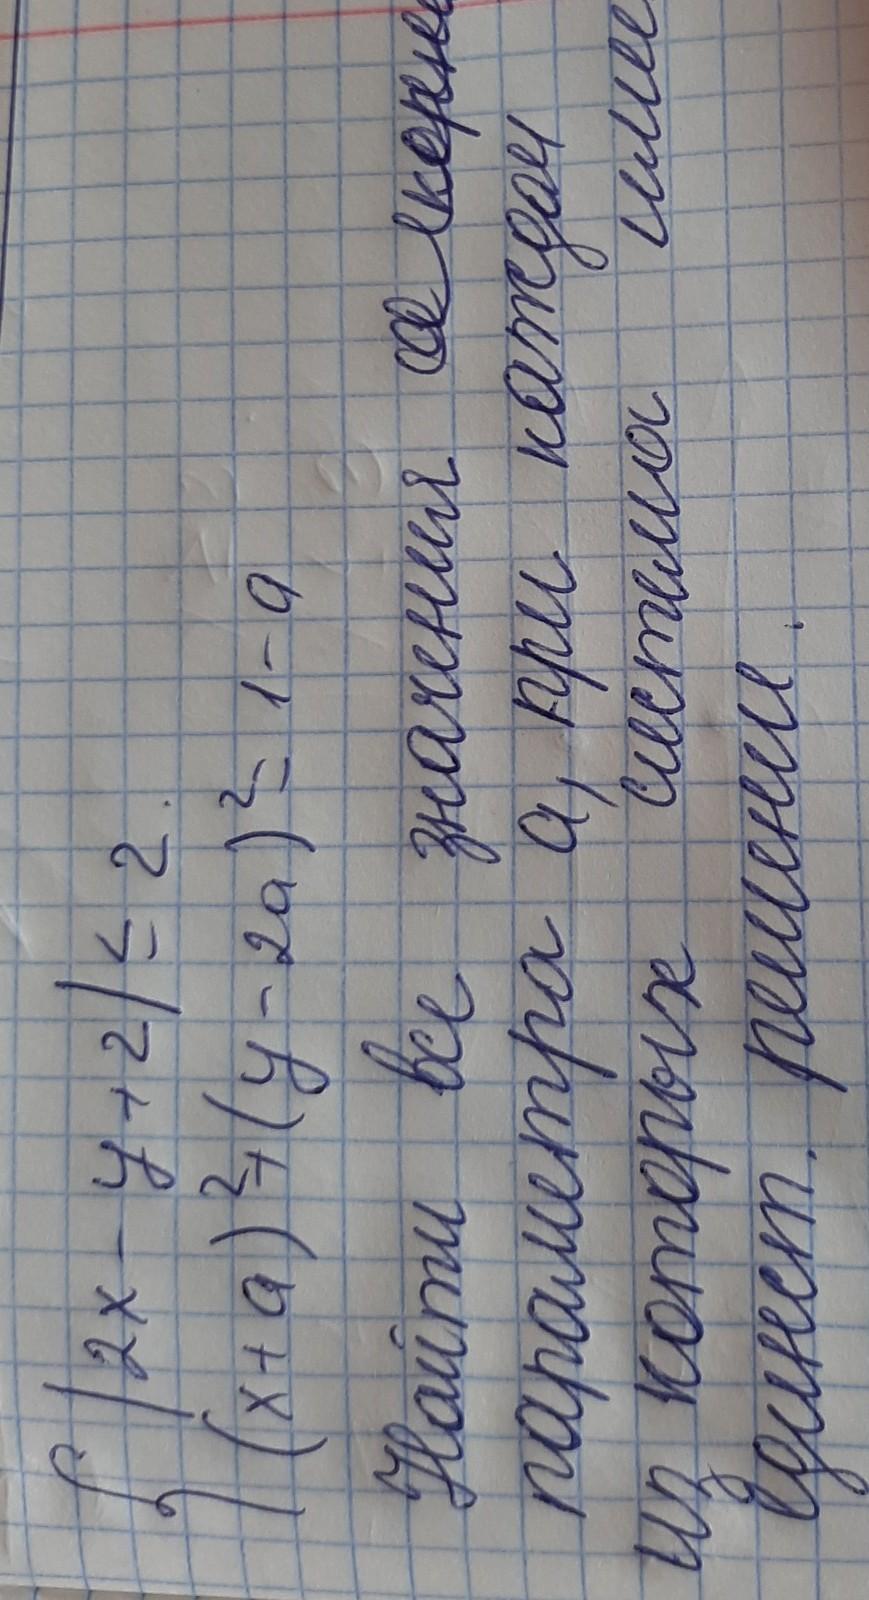 |2x - y + 2| ≤ 2.
(x + a)² + (y - 2a)² = 1 - a
Найти все значения
параметра a, при каждом
из которых система имее
единст. решение.